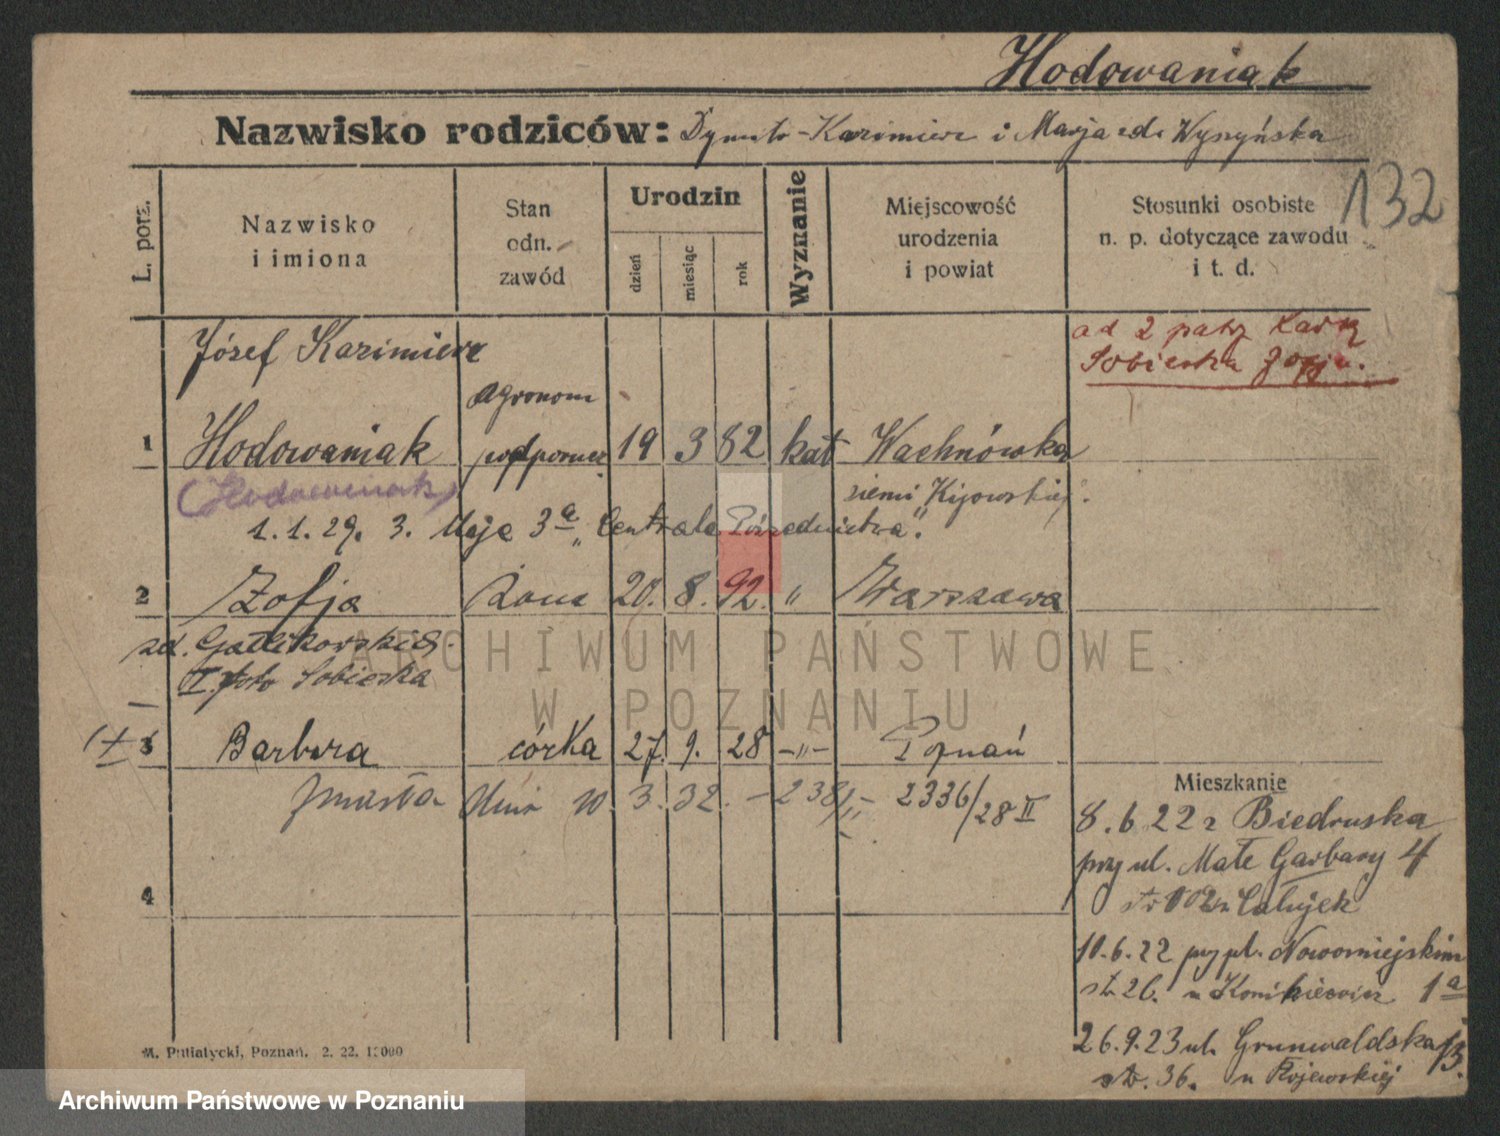 Hodowaniak
Nazwisko rodziców: Kazimierz i Marja zd. Wyszyńska
132
L. porz.
Nazwisko
i imiona
Stan
odn.
zawód
Urodzin
dzień
miesiąc
rok
Wyznanie
Miejscowość
urodzenia
i powiat
Stosunki osobiste
n. p. dotyczące zawodu
i t. d.
ad 2 patrz Kartę
Sobieska Zofja.
Józef Kazimierz
agronom
1 Hodowaniak podporucz 19 3 82 kat Wachnówka
(Hodowaniak) ziemi "Kijowskiej".
1. 1. 29. 3. Maja 3a "Centrala Pośrednictwa".
2 Zofja żona 20. 8. 92. " Warszawa
zd.
I voto Sobieska
3 Barbara córka 27. 9. 28 -"- Poznań
zmarła dnia 10. 3. 32. - 238/II - 2336/28 II
4
Mieszkanie
8. 6 22 z Biedruska
przy ul. Małe Garbary 4
10. 6. 22 przy pl. Nowomiejskim
str. 26. 1a
26. 9. 23 ul. Grunwaldska 13.
str. 36. u Kojewskiej
M. Putiatycki, Poznań. 2. 22. 12000
ARCHIWUM PAŃSTWOWE
W POZNANIU
Archiwum Państwowe w Poznaniu